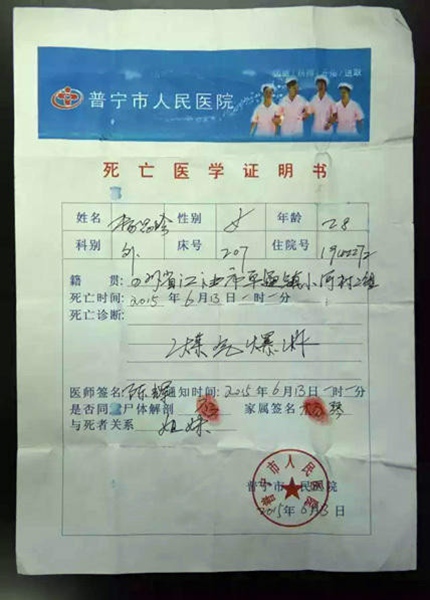 普宁市人民医院
死亡医学证明书
姓名 性别 女 年龄 28
科别 外 床号 207 住院号
籍 贯: 四川省江油市 镇小河村2组
死亡时间: 2015年6月13日一时一分
死亡诊断:
煤气爆炸
医师签名: 陈辉 通知时间: 2015年6月13日一时一分
是否同 尸体解剖 家属签名 琴
与死者关系 姐妹
普宁市人民医院
普宁市 民医院
2015年6月13日